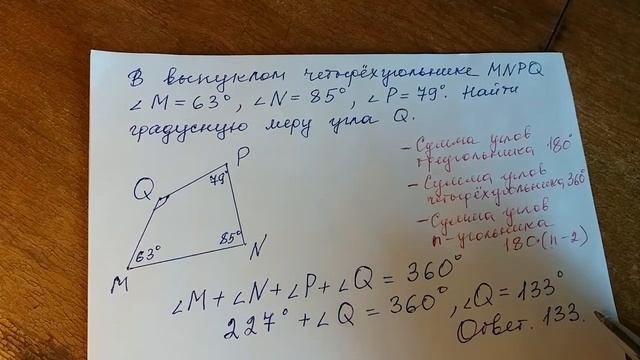 В выпуклом четырёхугольнике MNPQ
∠M = 63°, ∠N = 85°, ∠P = 79°. Найти
градусную меру угла Q.
- Сумма углов
треугольника 180°
- Сумма углов
четырёхугольника 360°
- Сумма углов
n-угольника
180·(n-2)
P
79°
Q
85°
N
63°
M
∠M + ∠N + ∠P + ∠Q = 360°
227° + ∠Q = 360°, ∠Q = 133°
Ответ. 133.